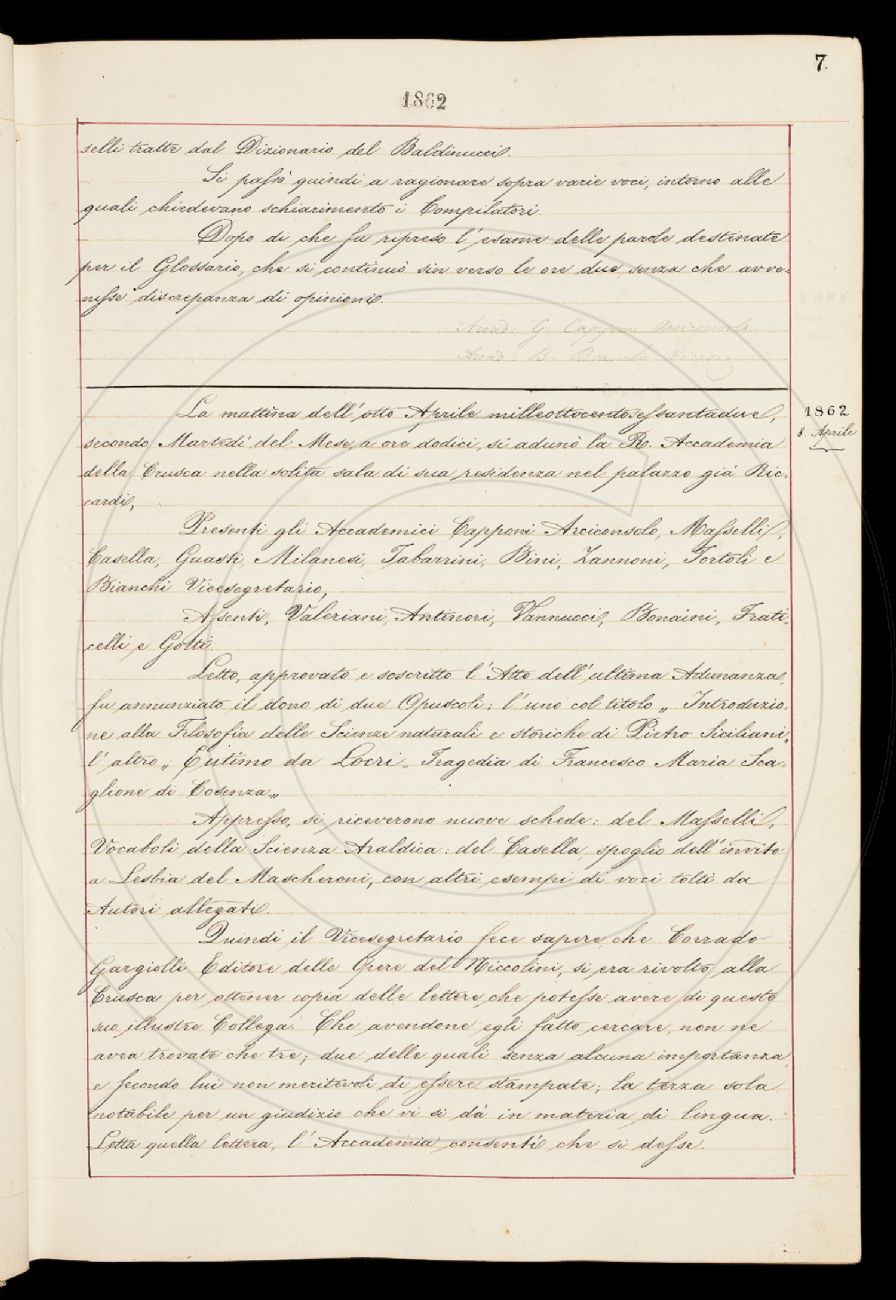 7.
1862
selli tratte dal Dizionario del Baldinucci.
Si passò quindi a ragionare sopra varie voci, intorno alle
quali chiedevano schiarimento i Compilatori.
Dopo di che fu ripreso l'esame delle parole destinate
per il Glossario, che si continuò sin verso le ore due, senza che avve-
nisse discrepanza di opinioni.
Accad: G. Capponi Arciconsolo
Accad: B. Bianchi Viceseg
La mattina dell'otto Aprile milleottocentosessantadue,
1862
8. Aprile
secondo Martedì del Mese, a ore dodici, si adunò la R. Accademia
della Crusca nella solita sala di sua residenza nel palazzo già Ric-
cardi,
Presenti gli Accademici Capponi Arciconsolo, Masselli,
Casella, Guasti, Milanesi, Tabarrini, Bini, Zannoni, Tortoli e
Bianchi Vicesegretario,
Assenti, Valeriani, Antinori, Vannucci, Bonaini, Frati-
celli, e Gotti.
Letto, approvato e soscritto l'Atto dell'ultima Adunanza,
fu annunziato il dono di due Opuscoli; l'uno col titolo „ Introduzio-
ne alla Filosofia delle Scienze naturali e storiche di Pietro Siciliani„
l'altro „ Eutimo da Locri „ Tragedia di Francesco Maria Sca-
glione di Cosenza„
Appresso, si riceverono nuove schede: del Masselli,
Vocaboli della Scienza Araldica: del Casella, spoglio dell'invito
a Lesbia del Mascheroni, con altri esempi di voci tolti da
Autori allegati.
Quindi il Vicesegretario fece sapere, che Corrado
Gargiolli Editore delle Opere del Niccolini, si era rivolto alla
Crusca per ottener copia delle lettere, che potesse avere di questo
suo illustre Collega. Che avendone egli fatto cercare, non ne
avea trovate che tre; due delle quali senza alcuna importanza,
e secondo lui non meritevoli di essere stampate; la terza sola
notabile per un giudizio che vi si dà in materia di lingua.
Letta quella lettera, l'Accademia consentì che si desse.